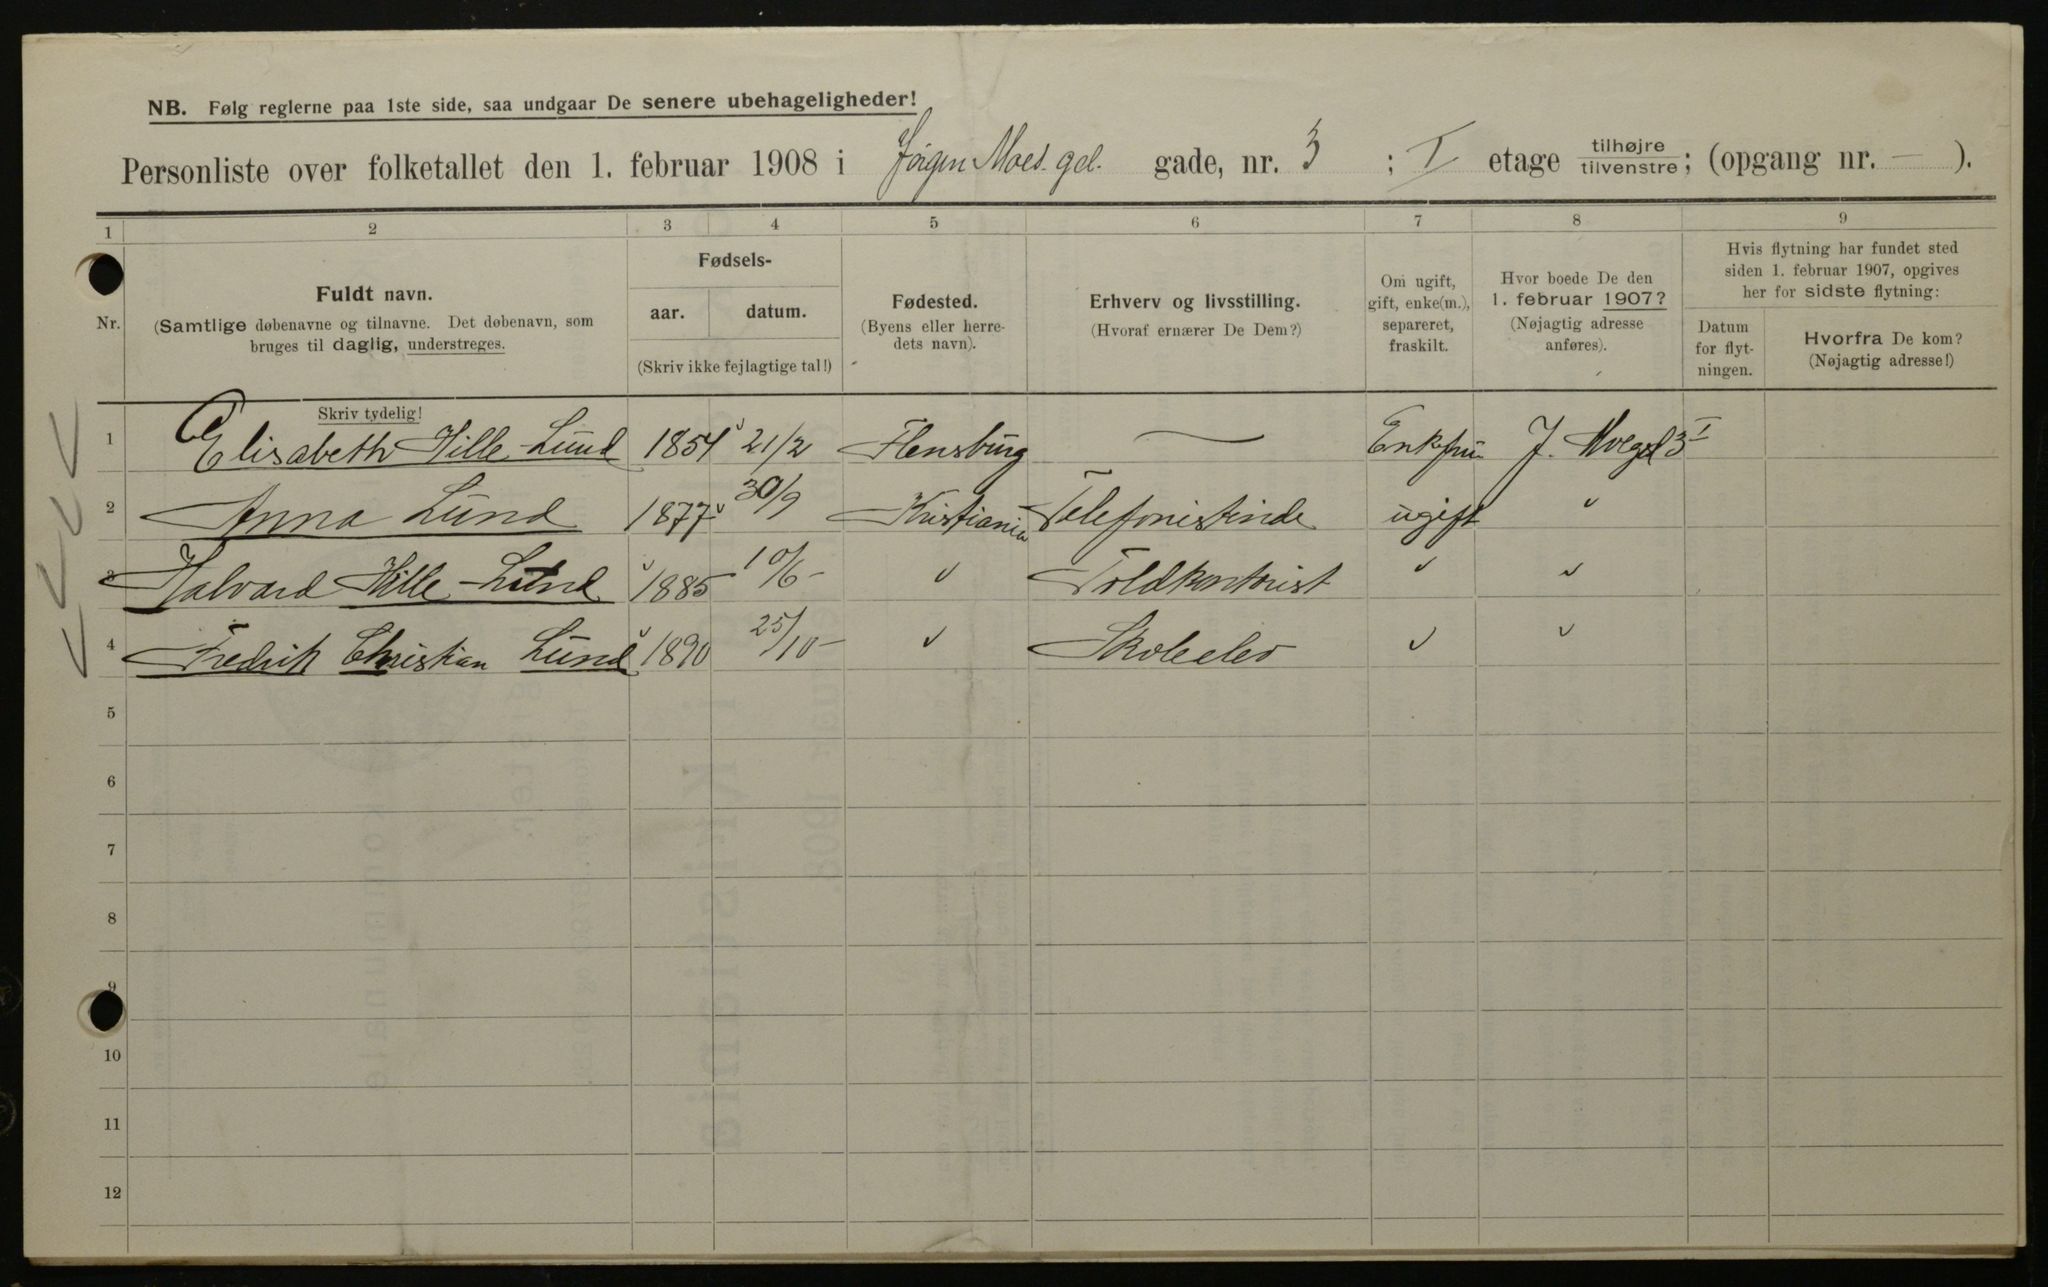 NB. Følg reglerne paa 1ste side, saa undgaar De senere ubehageligheder!
Personliste over folketallet den 1. februar 1908 i Jörgen Moes. gd. gade, nr. 3 ; I etage tilhøjre/tilvenstre; (opgang nr. — ).
1 2 3 4 5 6 7 8 9
Nr. Fuldt navn. (Samtlige døbenavne og tilnavne. Det døbenavn, som bruges til daglig, understreges.
Fødsels-
aar. datum.
(Skriv ikke fejlagtige tal!)
Fødested. (Byens eller herredets navn).
Erhverv og livsstilling. (Hvoraf ernærer De Dem?)
Om ugift, gift, enke(m.), separeret, fraskilt.
Hvor boede De den 1. februar 1907? (Nøjagtig adresse anføres).
Hvis flytning har fundet sted siden 1. februar 1907, opgives her for sidste flytning:
Datum for flytningen.
Hvorfra De kom? (Nøjagtig adresse!)
Skriv tydelig!
1 Elisabeth Hille-Lund 1854 21/2 Flensburg — Enkefru J. Moegd 3 I
2 Anna Lund 1877 30/9 Kristiania Telefonistinde ugift "
3 Halvard Hille-Lund 1885 10/6 - " Toldkontorist " "
4 Fredrik Christian Lund 1890 25/10 - " Skoleelev " "
5
6
7
8
9
10
11
12